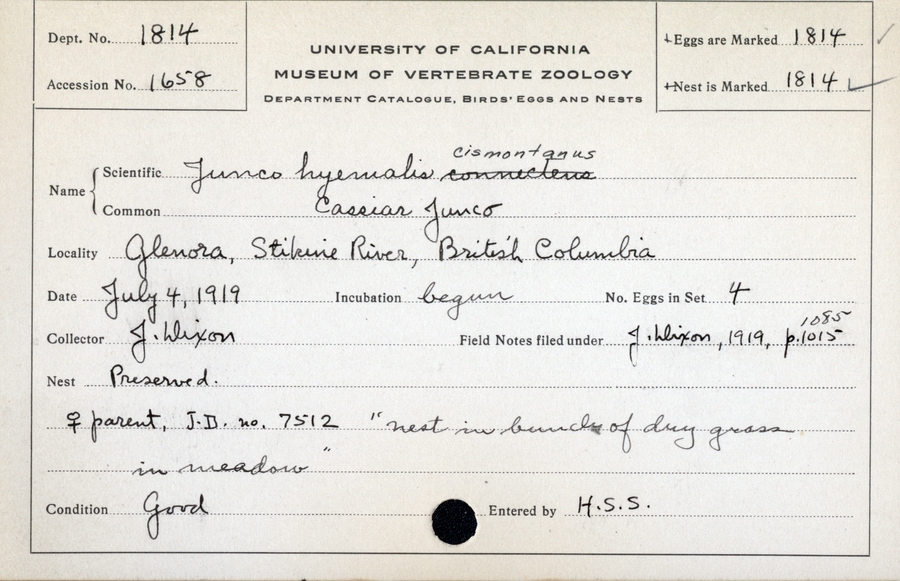 Dept. No. 1814
Accession No. 1658
UNIVERSITY OF CALIFORNIA
MUSEUM OF VERTEBRATE ZOOLOGY
DEPARTMENT CATALOGUE, BIRDS' EGGS AND NESTS
Eggs are Marked 1814 ✓
Nest is Marked 1814 ✓
cismontanus
Name { Scientific Junco hyemalis connectens
Common Cassiar Junco
Locality Glenora, Stikine River, British Columbia
Date July 4, 1919 Incubation begun No. Eggs in Set 4
1085
Collector J. Dixon Field Notes filed under J. Dixon, 1919, p. 1015
Nest Preserved.
♀ parent, J.D. no. 7512 "nest in bunch of dry grass
in meadow"
Condition Good Entered by H.S.S.